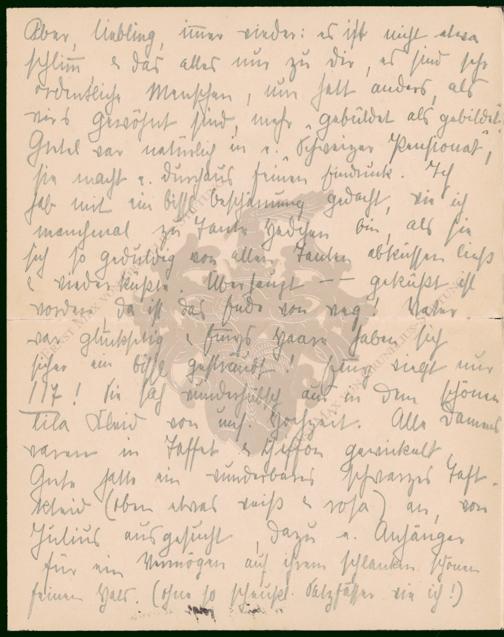 Aber, Liebling, immer wieder: es ist nicht etwa
schlimm & das alles nur zu dir, es sind sehr
ordentliche Menschen, nur halt anders, als
wirs gewöhnt sind, mehr gebüldet als gebildet.
Gretel war natürlich in e. "Schweizer Pensionat",
sie macht e. durchaus feinen Eindruck. Ich
hab mit ein bissl Beschämung gedacht, wie ich
manchmal zu Tante Hedchen bin als sie
sich so geduldig von allen Tanten abküssen ließ
& wiederküßte. Überhaupt — geküßt ist
worden, da ist das Ende von weg! Vater
war glückselig & Haare haben sich
sicher ein bissl gesträubt! wiegt nur
117! Sie sah wunderhübsch aus in dem schönen
lila Kleid von uns. Hochzeit. Alle Damens
waren in Taffet & Chiffon gewickelt,
Gute hatte ein wunderbares schwarzes Taft-
kleid (oben etwas weiß & rosa) an, von
Julius ausgesucht, dazu e. Anhänger
für ein Vermögen auf ihrem schlanken schönen
feinen Hals. (Ohne so scheußl. Salzfässer wie ich!)